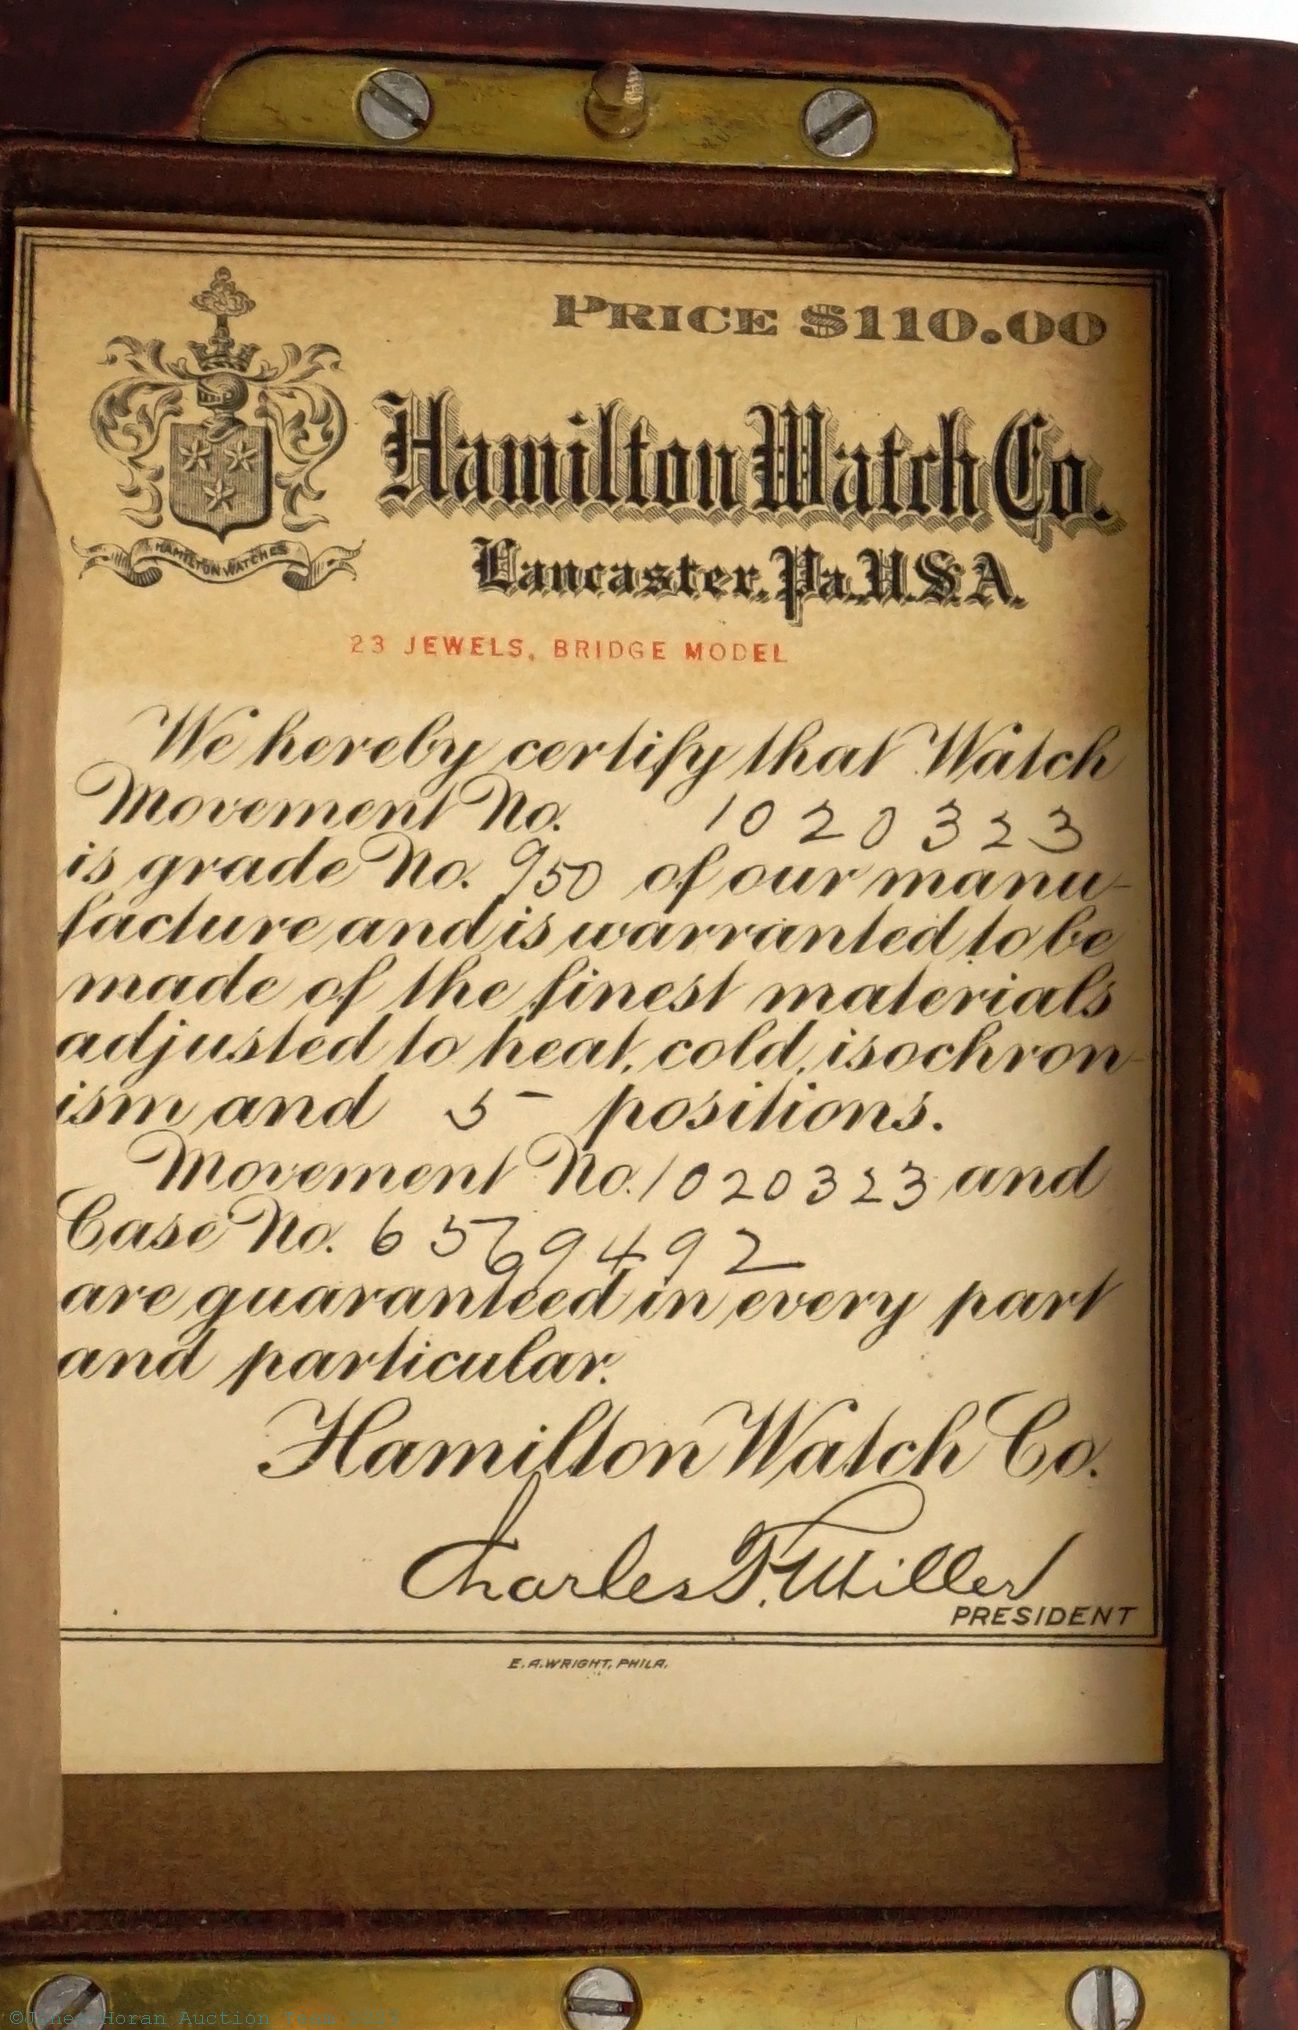 PRICE $110.00
Hamilton Watch Co.
Lancaster, Pa. U.S.A.
HAMILTON WATCHES
23 JEWELS, BRIDGE MODEL
We hereby certify that Watch
Movement No. 1020323
is grade No. 950 of our manu-
facture and is warranted to be
made of the finest materials
adjusted to heat, cold, isochron-
ism and 5 positions.
Movement No. 1020323 and
Case No. 6569492
are guaranteed in every part
and particular.
Hamilton Watch Co.
Charles F. Miller
PRESIDENT
E. A. WRIGHT, PHILA.
©Jones Horan Auction Team